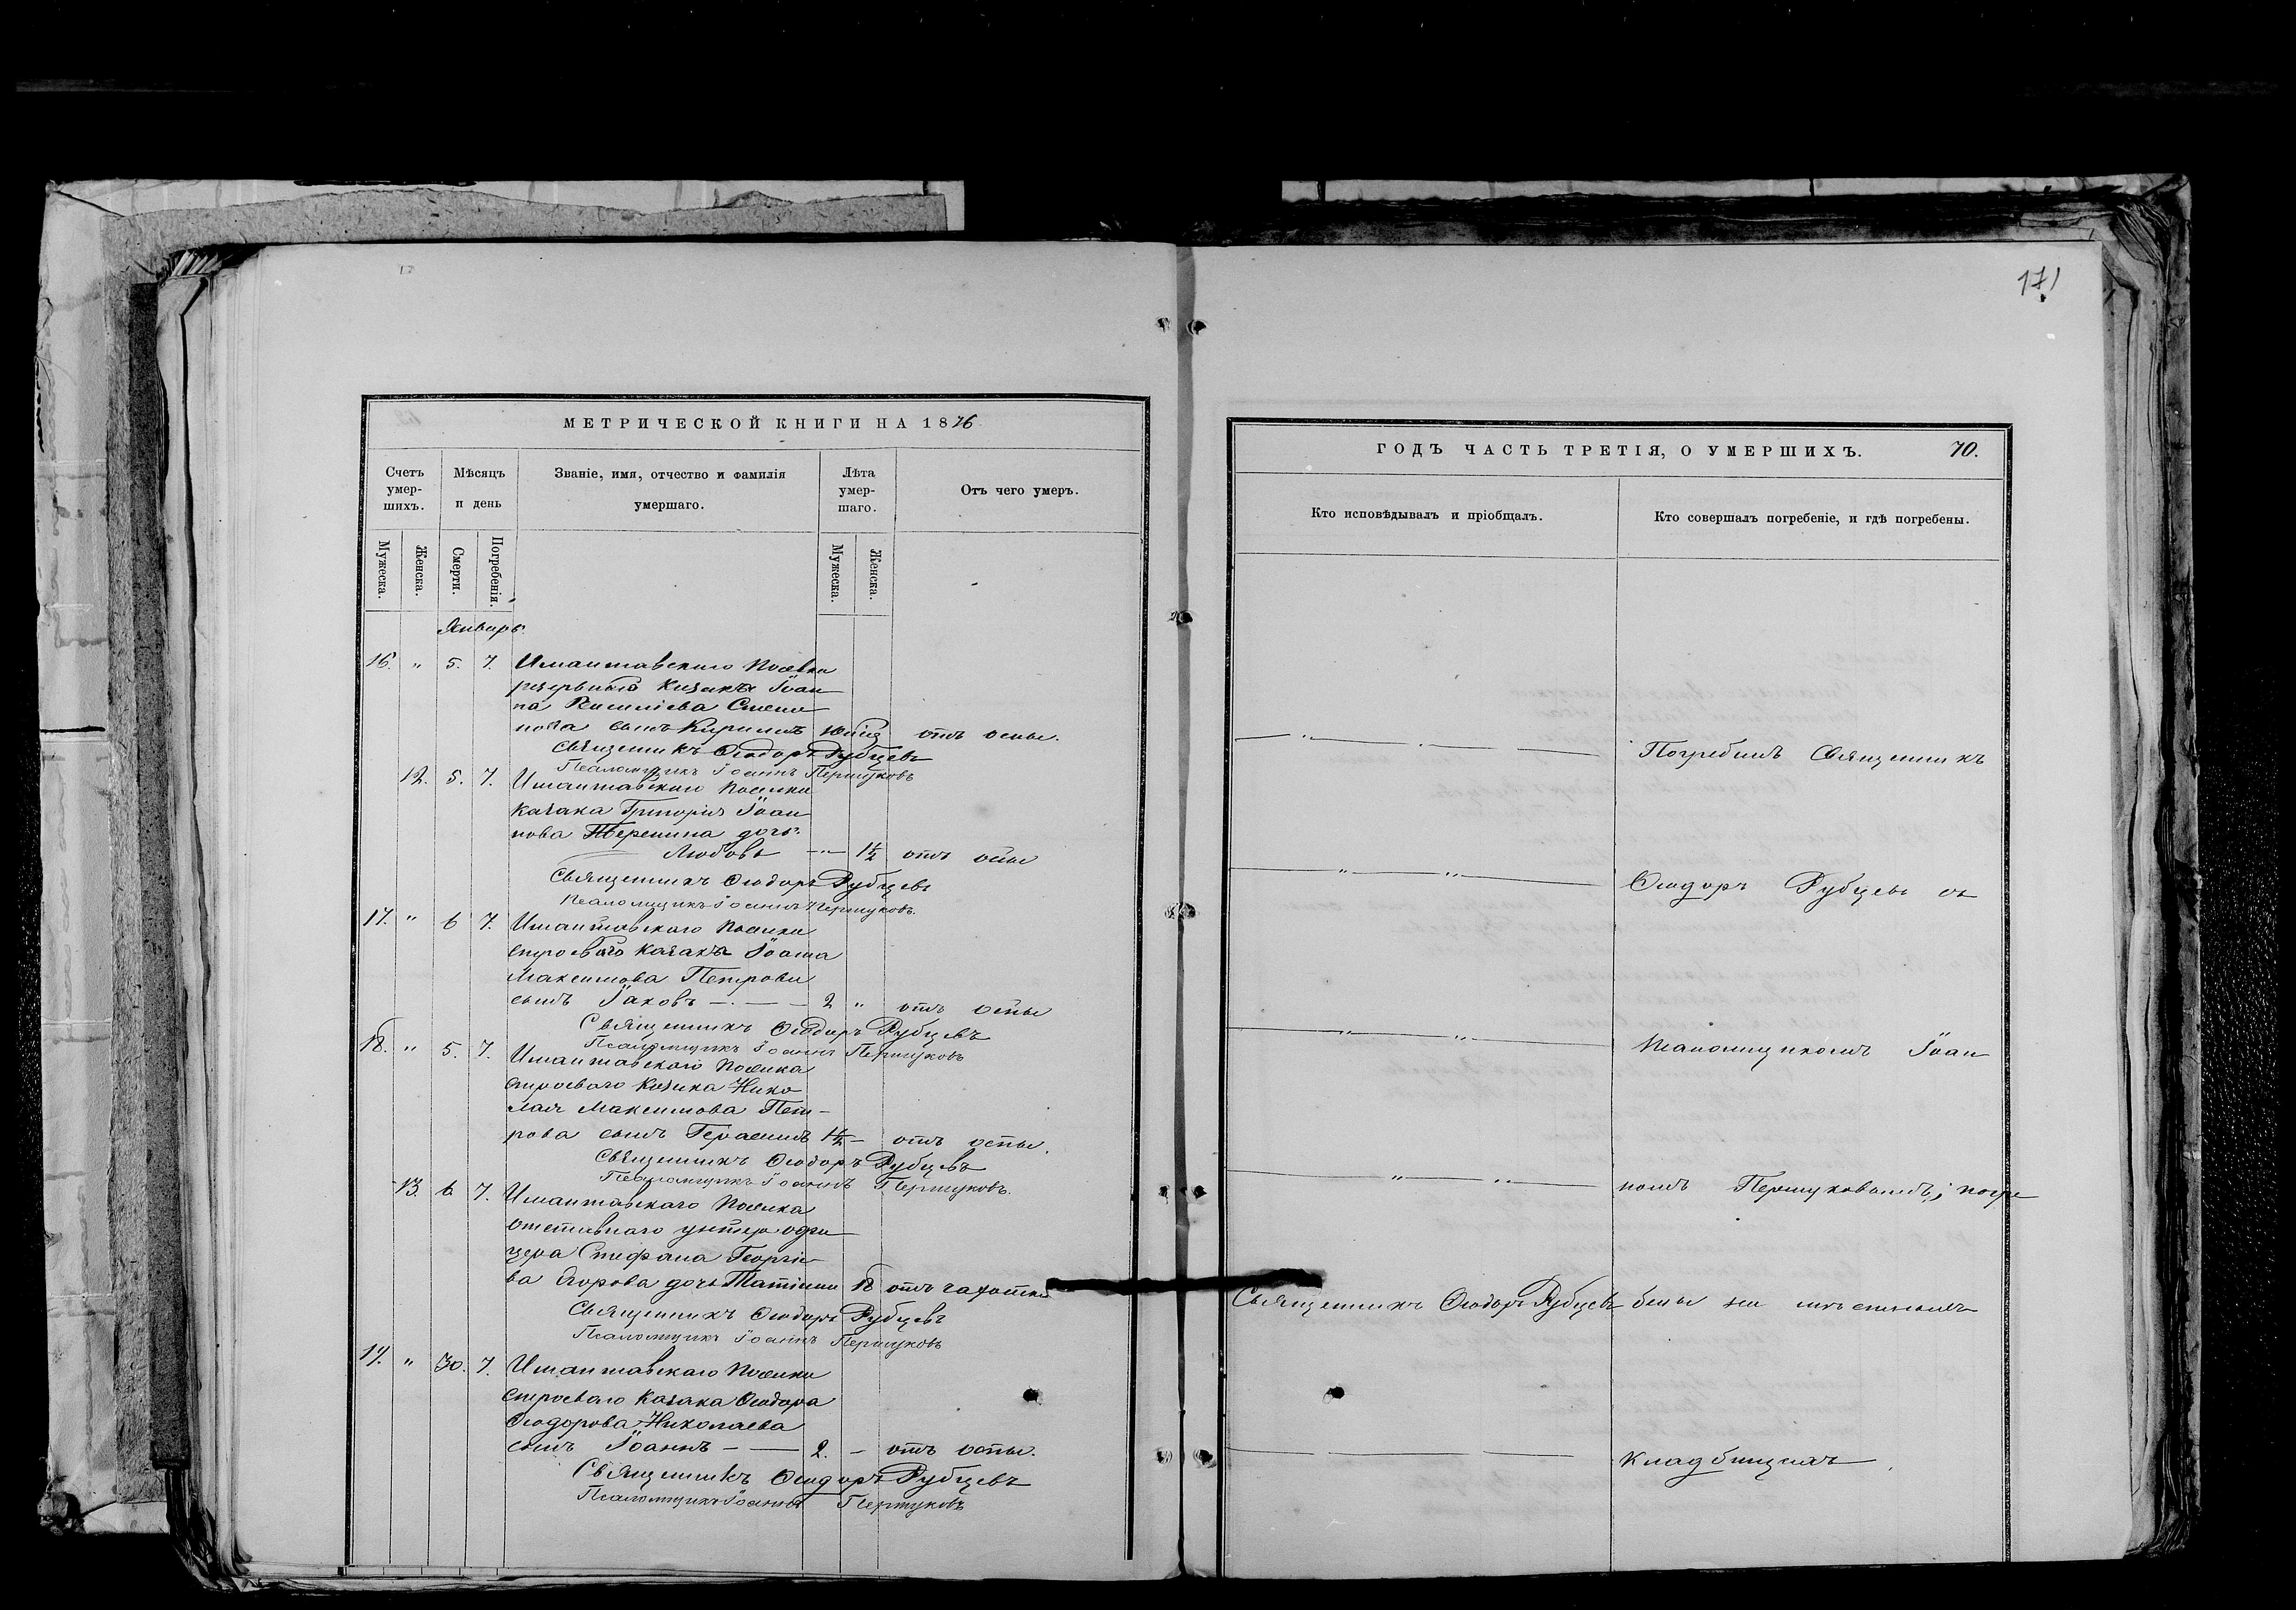 171
МЕТРИЧЕСКОЙ КНИГИ НА 1876
Счетъ умер-шихъ.
Мѣсяцъ и день
Званіе, имя, отчество и фамилія умершаго.
Лѣта умер-шаго.
Отъ чего умеръ.
Мужеска.
Женска.
Смерти.
Погребенія.
Мужеска.
Женска.
Январь
16. " 5. 7. Имантавскаго Поселка
резервнаго казака Іоан
на
сынъ Кирилъ отъ оспы.
Священникъ Ѳеодоръ Рубцевъ
Псаломщикъ Іоаннъ Першуковъ
12. 5. 7. Имантавскаго Поселка
казака Григорія Іоан
нова дочь
Любовь - " - 1½ отъ оспы
Священникъ Ѳеодоръ Рубцевъ
Псаломщикъ Іоаннъ Першуковъ.
17. " 6 7. Имантавскаго Поселка
строеваго казака Іоанна
Максимова Петрова
сынъ Іаковъ - . - - 2 " отъ оспы
Священникъ Ѳеодоръ Рубцевъ
Псаломщикъ Іоаннъ Першуковъ
18. " 5. 7. Имантавскаго Поселка
строеваго казака Нико
лая Максимова Пет-
рова сынъ Герасимъ 1½ - отъ оспы.
Священникъ Ѳеодоръ Рубцевъ
Псаломщикъ Іоаннъ Першуковъ.
13. 6 7. Имантавскаго Поселка
отставнаго унтеръ офи
цера Стефана Георгіе-
ва Егорова дочь Татіана 18 отъ чахотки
Священникъ Ѳеодоръ Рубцевъ
Псаломщикъ Іоаннъ Першуковъ
19. " 30. 7. Имантавскаго Поселка
строеваго казака Ѳеодора
Ѳеодорова Николаева
сынъ Іоаннъ - - 2. - отъ оспы.
Священникъ Ѳеодоръ Рубцевъ
Псаломщикъ Іоаннъ Першуковъ
ГОДЪ ЧАСТЬ ТРЕТІЯ, О УМЕРШИХЪ. 70.
Кто исповѣдывалъ и пріобщалъ.
Кто совершалъ погребеніе, и гдѣ погребены.
Погребалъ Священникъ
Ѳеодоръ Рубцевъ съ
Псаломщикомъ Іоан
номъ Першуковымъ; погре
Священникъ Ѳеодоръ Рубцевъ бены на мѣстномъ
кладбищѣ